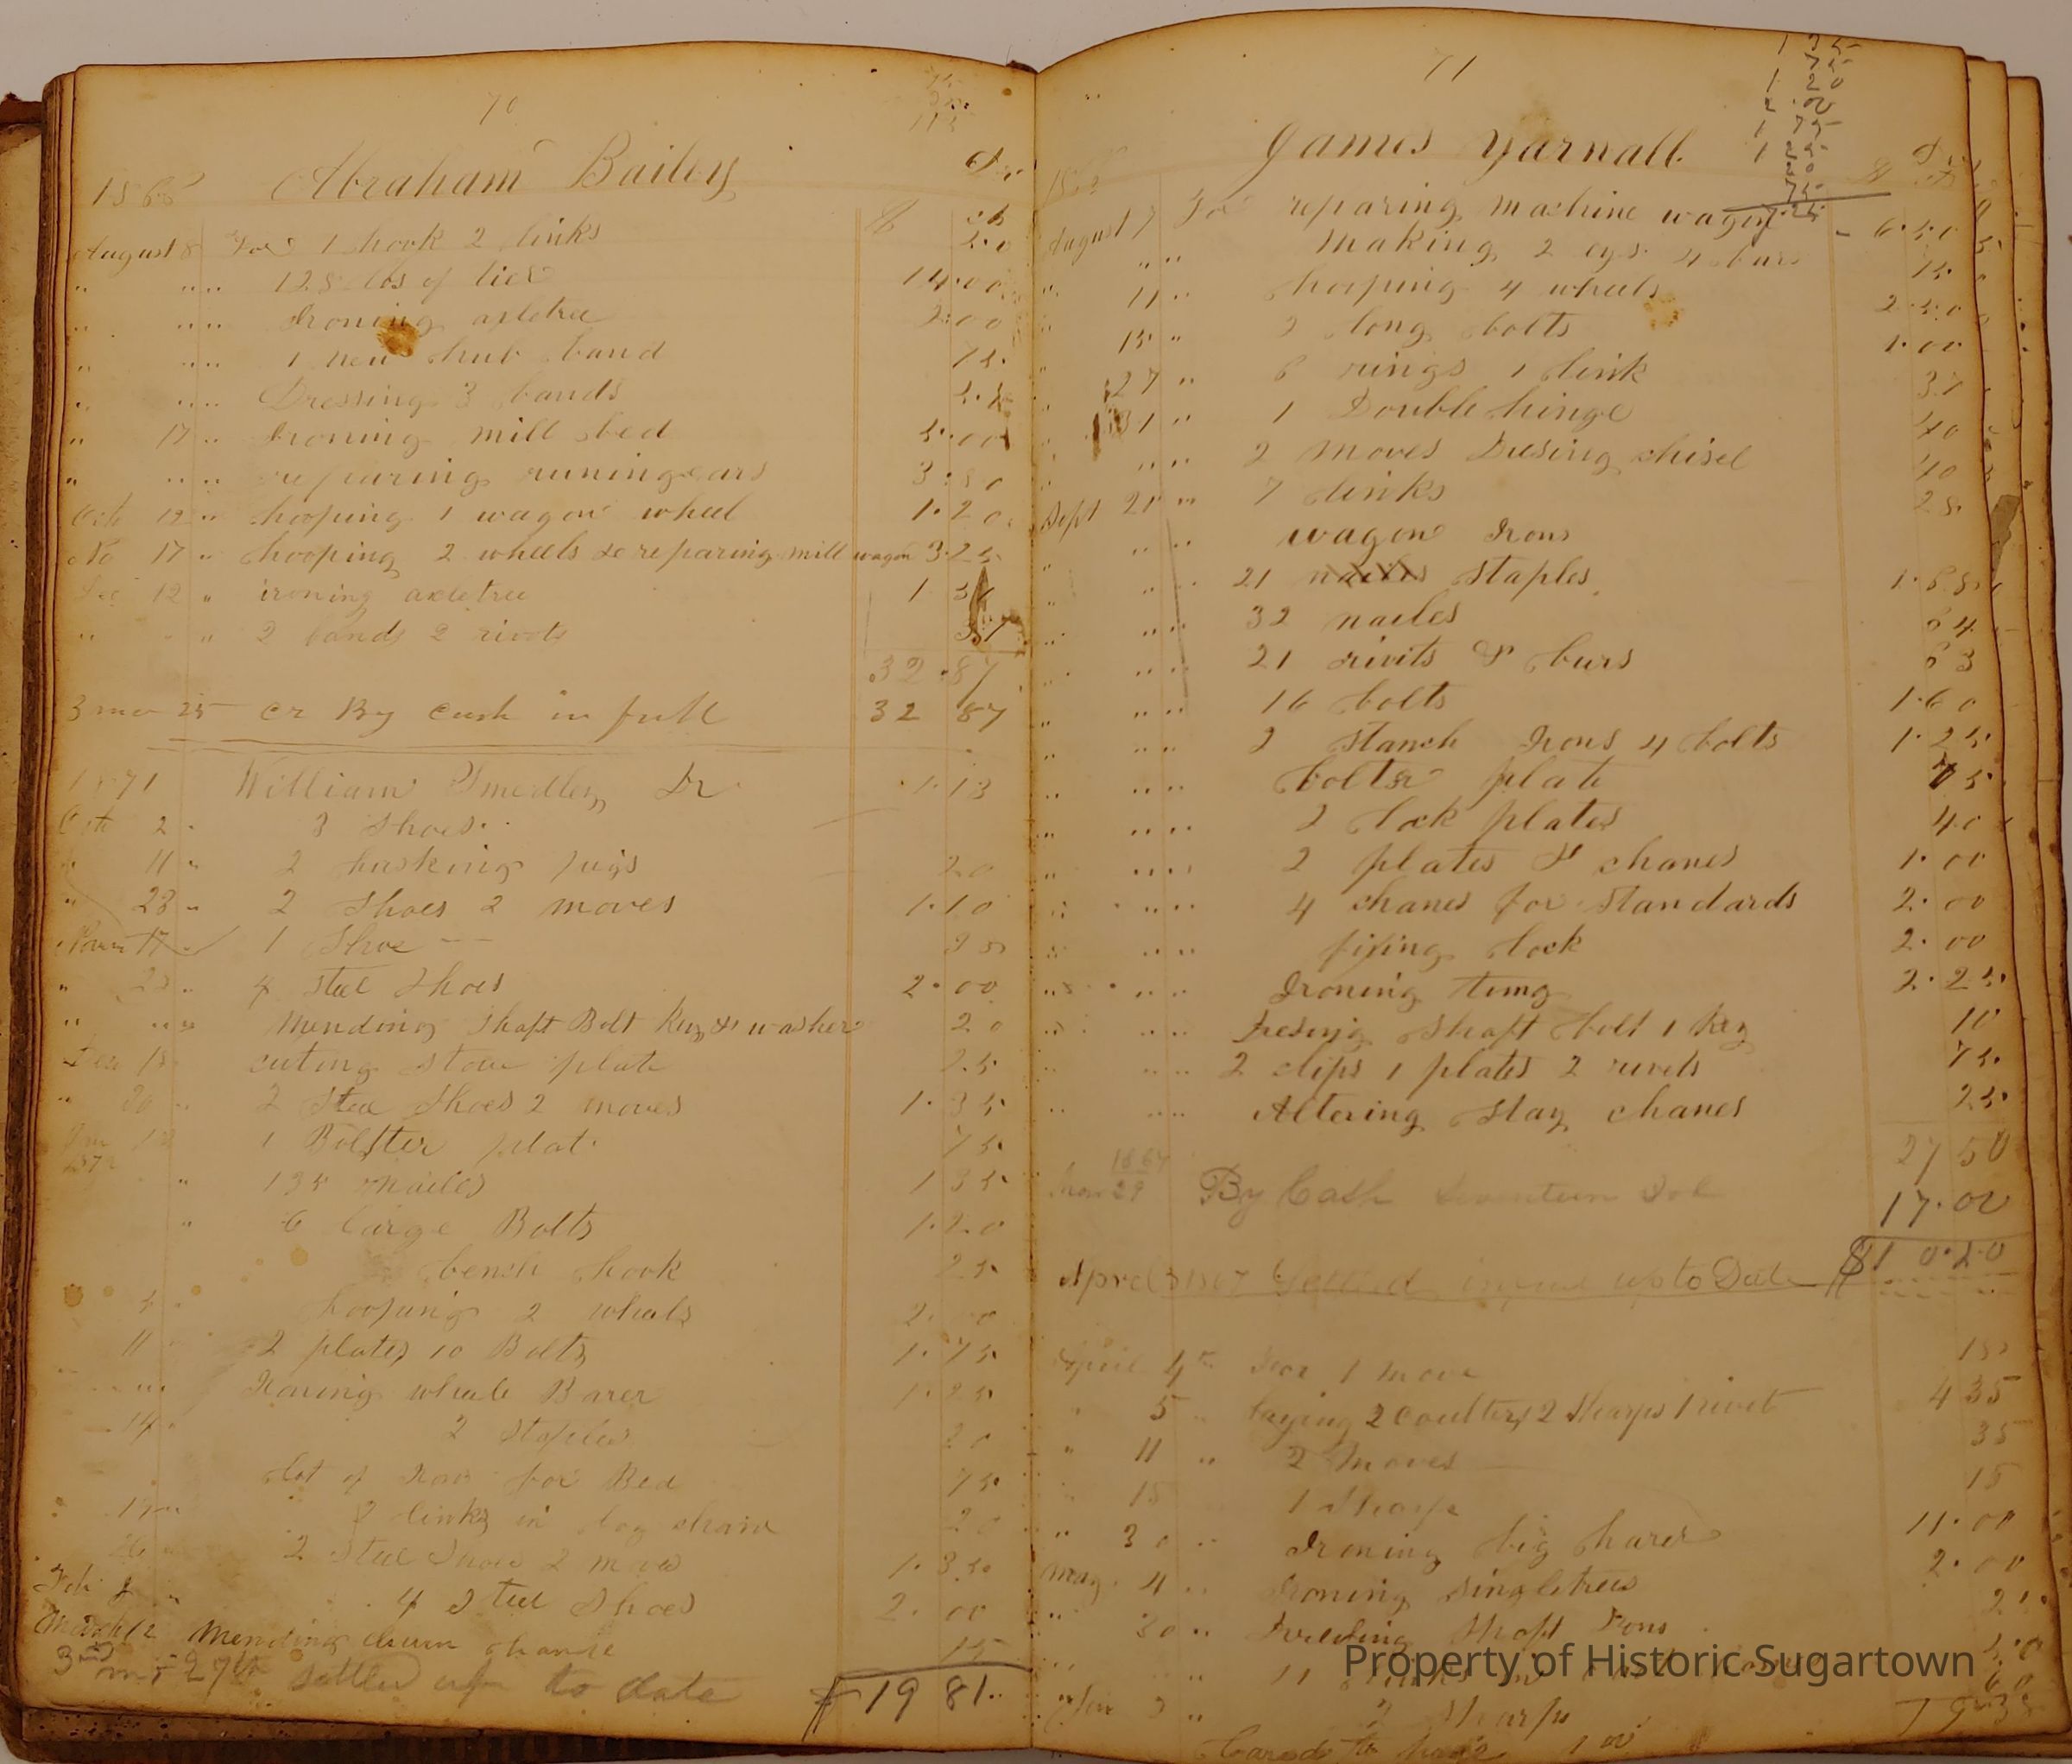 70
Abraham Bailey Dr
August 8 For 1 hook 2 links 50
" " 128 lbs of tier 14.00
" " Ironing axletree 2.00
" " 1 new hub band 75
" " Dressing 3 bands
" 17 " Ironing mill bed 5.00
" " reparing runingears 3.50
Oct 12 " hooping 1 wagon wheel 1.20
No 17 " hooping 2 wheels & reparing mill wagon 3.25
Dec 12 " ironing axletree 1
" " 2 bands 2 rivets 37
32.87
3 mo 25 cr By Cash in full 32 87
1871 William Smedley Dr 1.13
Oct 2 " 3 Shoes
" 11 " 2 husking pegs 20
" 23 " 2 Shoes 2 moves 1.10
Novem 17 " 1 Shoe 35
" 23 " 4 steel Shoes 2.00
" " " mending Shaft Bolt Key & washer 20
Dec 15 cuting stove plate 25
" 20 " 2 Steel Shoes 2 moves 1.35
1 Bolster plat 75
" 135 nailes 1 35
" 6 large Bolts 1.20
bench hook 25
hooping 2 wheels 2.00
11 " 2 plates 10 Bolts 1.75
Ironing wheele Barer 1.25
14 " 2 staples 20
lot of Iron for Bed 75
2 links in log chain 20
26 " 2 Steel Shoes 2 moves 1.35
Feb 4 Steel Shoes 2.00
March 12 mending chane 15
3rd mo 27th settled up to date $19 81
71
1 35
75
1 20
2.00
1 75
James Yarnall Dr
August 7 For reparing machine wagon 6.50
" " making 2 eys 4 burs 15
" 11 " hooping 4 wheels 2.50
" 15 " 2 long bolts 1.00
" 27 " 6 rings 1 link 37
" 31 " 1 Double hinge 40
" " " 2 moves Dresing chisel 40
Sept 21 " 7 links 28
" " wagon Irons
" " 21 staples 1.68
" " 32 nailes 64
" " 21 rivits & burs 63
" " 16 bolts 1.60
" " 2 stanch Irons 4 bolts 1.25
" " bolster plate 75
" " 2 lock plates 40
" " 2 plates & chanes 1.00
" " 4 chanes for Standards 2.00
" " fixing lock 2.00
" " Ironing tung 2.25
" " Dresing Shaft bolt 1 key 10
" " 2 clips 1 plates 2 rivets 75
" " Altering stay chanes 25
27 50
29 By Cash Seventeen Dol 17.00
Settled up to Date $10.50
April 4th For 1 move 15
" 5 " laying 2 Coulters 2 Sharps 1 rivet 4 35
" 11 " 2 moves 35
" 15 1 Sharp 15
" 30 " Ironing big harer 11.00
May 4 " Ironing singletrees 2.00
" 30 " Shaft Irons 25
" " 11 links 50
2 Sharps
1 00
Property of Historic Sugartown